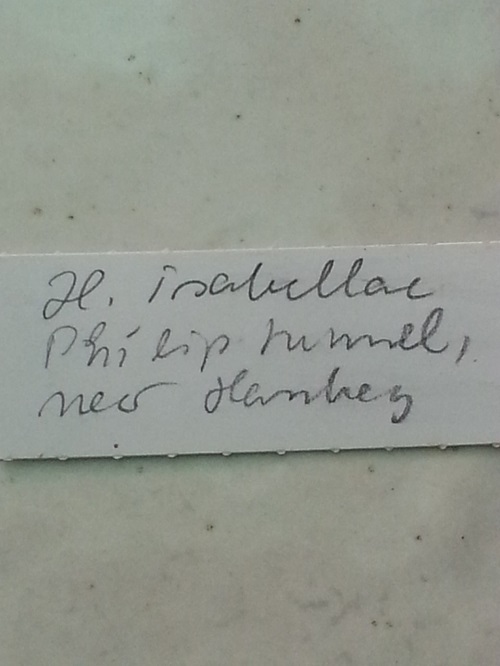 H. isabellae
Philip tunnel,
near Hankey